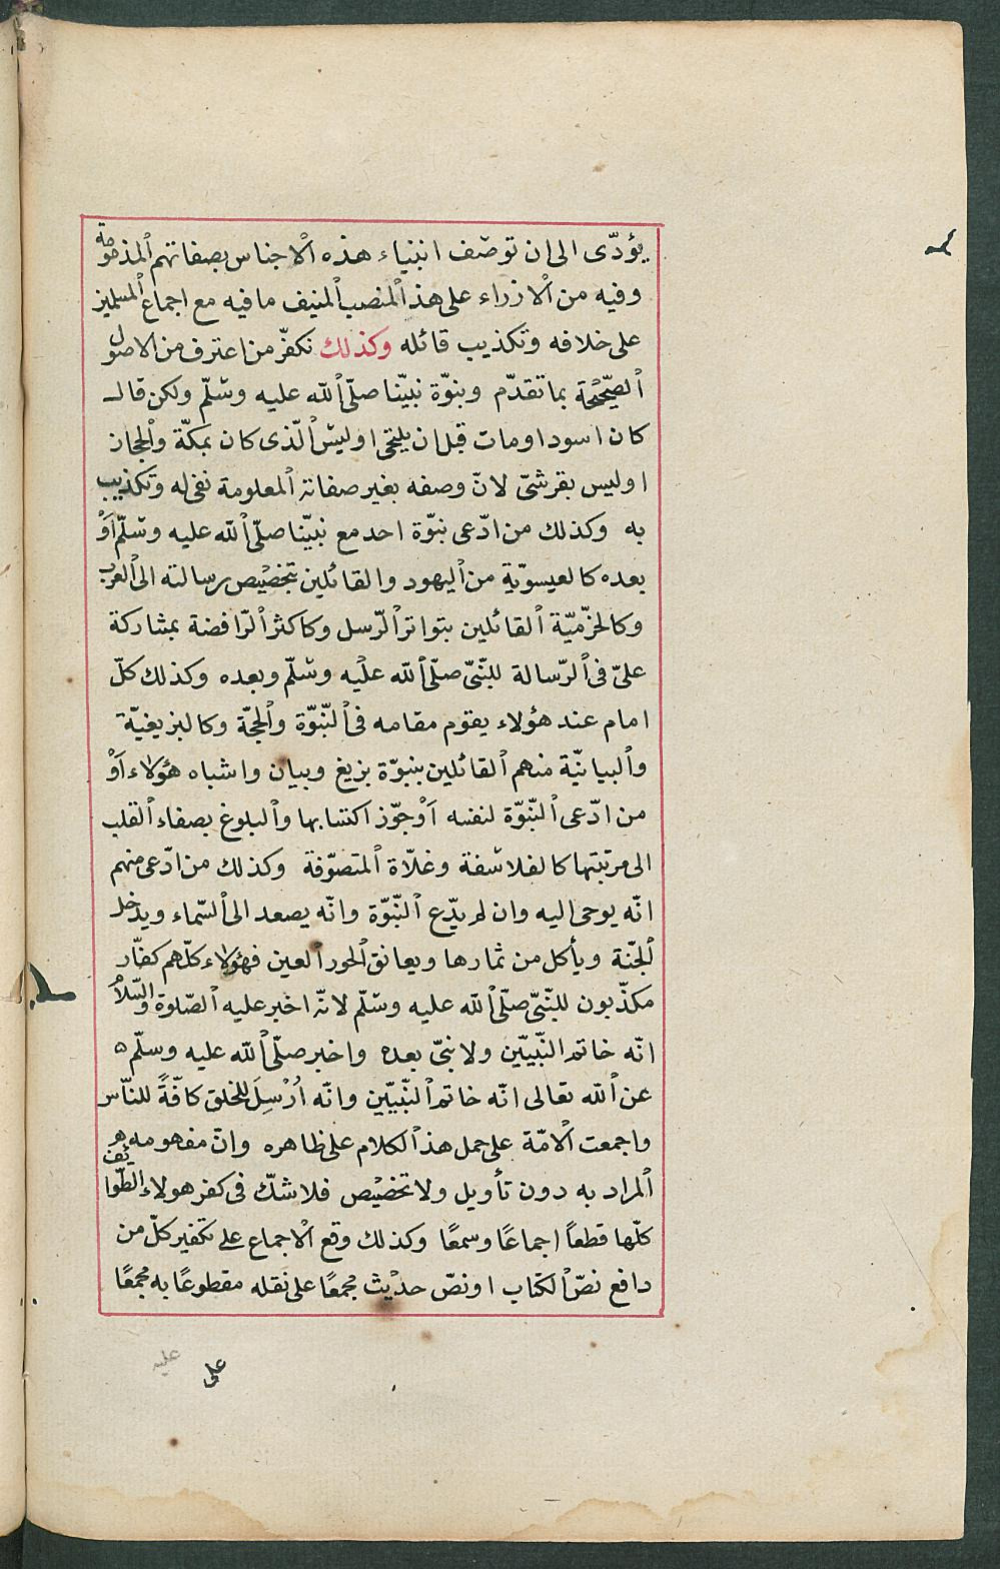 يؤدّى الى ان توصف انبياء هذه الاجناس بصفاتهم المذمومة
وفيه من الازراء على هذ المنصب المنيف ما فيه مع اجماع المسلمين
على خلافه وتكذيب قائله وكذلك نكفّر من اعترف من الاصول
الصّحيحة بما تقدّم وبنوّة نبيّنا صلّى الله عليه وسّلّم ولكن قال
كان اسود او مات قبل ان يلتحى او ليس الّذى كان بمكّة والحجاز
او ليس بقرشىّ لانّ وصفه بغير صفاته المعلومة نفى له وتكذيب
به وكذلك من ادّعى نبوّة احد مع نبيّنا صلّى الله عليه وسّلّم اَوْ
بعده كالعيسويّة من اليهود والقائلين بتخصيص رسالته الى العرب
وكالخرّميّة القائلين بتواتر الرّسل وكاكثر الرّافضة بمشاركة
علىّ فى الرّسالة للنّبىّ صلّى الله عليه وسّلّم وبعده وكذلك كلّ
امام عند هؤلاء يقوم مقامه فى النّبوّة والحجّة وكالبزيغيّة
والبيانيّة منهم القائلين بنبوّة بزيغ وبيان واشباه هؤلاء اَوْ
من ادّعى النّبوّة لنفسه اَوْ جوّز اكتسابها والبلوغ بصفاء القلب
الى مرتبتها كالفلاسفة وغلّاة المتصوّفة وكذلك من ادّعى منهم
انّه يوحى اليه وان لم يدّع النّبوّة وانّه يصعد الى السّماء ويدخل
الجنّة ويأكل من ثمارها ويعانق الحور العين فهؤلاء كلّهم كفّار
مكذّبون للنّبىّ صلّى الله عليه وسّلّم لانّه اخبر عليه الصّلوة والسّلام
انّه خاتم النّبيّين ولا نبىّ بعده واخبر صلّى الله عليه وسلّم ه
عن الله تعالى انّه خاتم النّبيّين وانّه اُرْسِلَ للخلق كافّةً للنّاس
واجمعت الامّة على حمل هذ الكلام على ظاهره وانّ مفهومه هو
المراد به دون تأويل ولا تخصيص فلا شكّ فى كفر هولاء الطّوائف
كلّها قطعاً اجماعًا وسمعًا وكذلك وقع الاجماع على تكفير كلّ من
دافع نصّ الكتاب او نصّ حديث مجمعًا على نقله مقطوعًا به مجمعًا
على
عليه